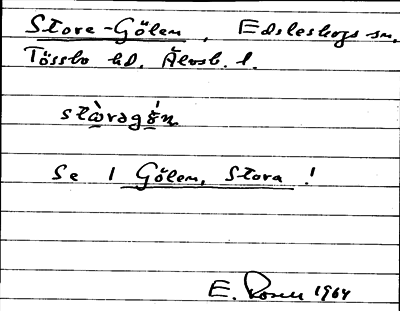 Store-Gölen, Edsleskogs sn.
Tössbo hd. Älvsb. l.
stɑ̀ragǿ́n
Se 1 Gölen, Stora !
E. Rosell 1964